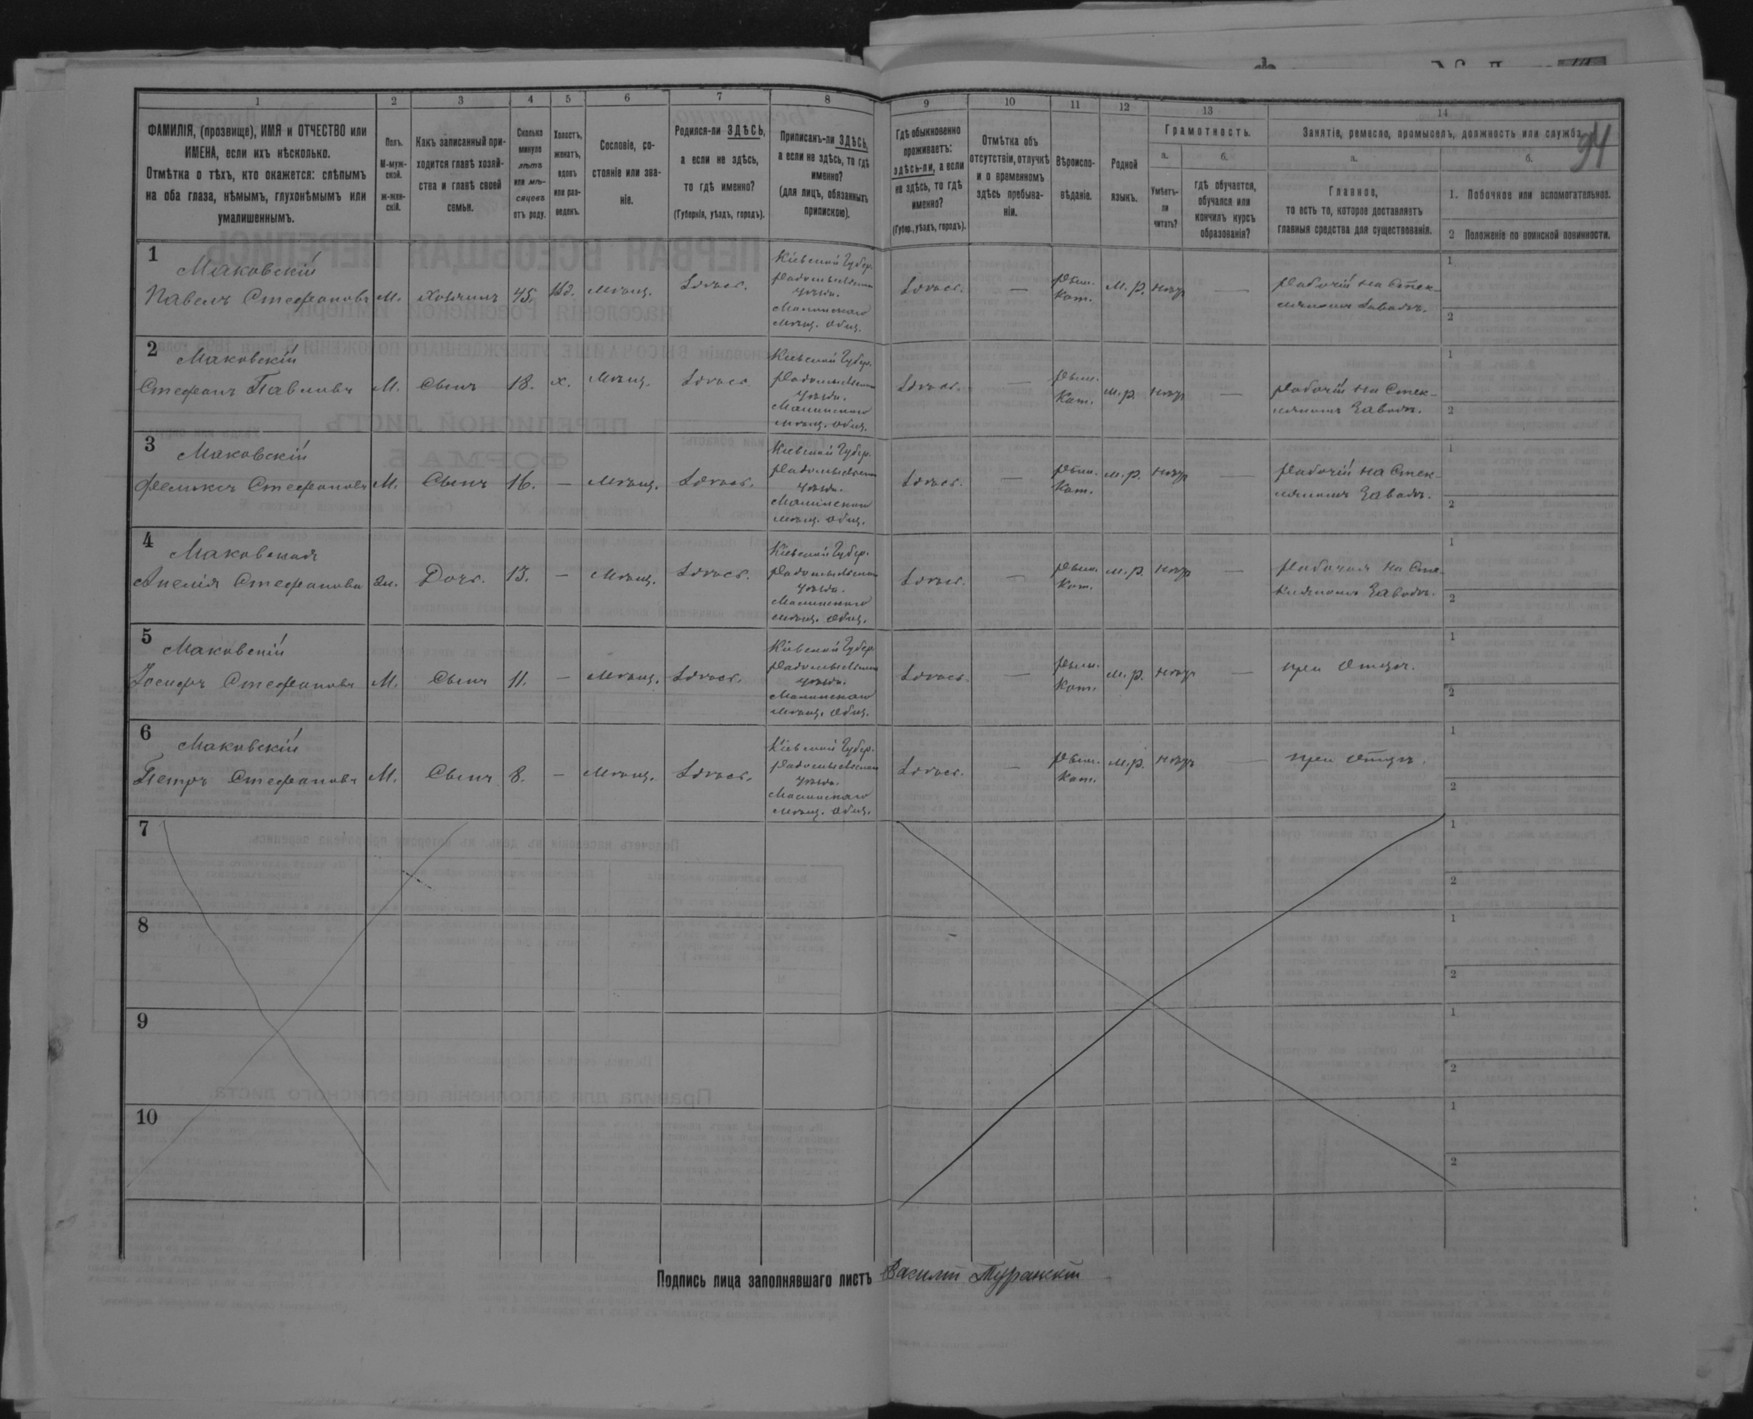 1
2
3
4
5
6
7
8
9
10
11
12
13
14
ФАМИЛІЯ, (прозвище), ИМЯ и ОТЧЕСТВО или
ИМЕНА, если ихъ нѣсколько.
Отмѣтка о тѣхъ, кто окажется: слѣпымъ
на оба глаза, нѣмымъ, глухонѣмымъ или
умалишеннымъ.
Полъ.
М-муж-
ской.
ж-жен-
скій.
Какъ записанный при-
ходится главѣ хозяй-
ства и главѣ своей
семьи.
Сколько
минуло
лѣтъ
или мѣ-
сяцевъ
отъ роду.
Холостъ,
женатъ,
вдовъ
или раз-
веденъ.
Сословіе, со-
стояніе или зва-
ніе.
Родился-ли ЗДѢСЬ,
а если не здѣсь,
то гдѣ именно?
(Губернія, уѣздъ, городъ).
Приписанъ-ли ЗДѢСЬ,
а если не здѣсь, то гдѣ
именно?
(для лицъ, обязанныхъ
припискою).
Гдѣ обыкновенно
проживаетъ:
здѣсь-ли, а если
не здѣсь, то гдѣ
именно?
(Губер., уѣздъ, городъ).
Отмѣтка объ
отсутствіи, отлучкѣ
и о временномъ
здѣсь пребыва-
ніи.
Вѣроиспо-
вѣданіе.
Родной
языкъ.
Грамотность.
а.
б.
Умѣетъ-
ли
читать?
гдѣ обучается,
обучался или
кончилъ курсъ
образованія?
Занятіе, ремесло, промыселъ, должность или служба.
94
а.
б.
Главное,
то есть то, которое доставляетъ
главныя средства для существованія.
1. Побочное или вспомогательное.
2 Положеніе по воинской повинности.
1
Маковскій
Павелъ Стефановъ
М. Хозяинъ 45. вд. Мѣщ. Здѣсь.
Кіевской Губер.
Радомысльскаго
уѣзда.
Малинскаго
мѣщ. общ.
Здѣсь. — Рим. Кат. м.р. нѣтъ —
Рабочій на Стек-
лянномъ Заводѣ.
1
2
2
Маковскій
Стефанъ Павловъ
М. Сынъ 18. х. Мѣщ. Здѣсь
Кіевской Губер.
Радомысльскаго
уѣзда.
Малинскаго
мѣщ. общ.
Здѣсь. — Рим. Кат. м.р. нѣтъ —
Рабочій на Стек-
лянномъ Заводѣ.
1
2
3
Маковскій
Феликсъ Стефановъ
М. Сынъ 16. — Мѣщ. Здѣсь.
Кіевской Губер.
Радомысльскаго
уѣзда.
Малинскаго
мѣщ. общ.
Здѣсь. — Рим. Кат. м.р. нѣтъ —
Рабочій на Стек-
лянномъ Заводѣ.
1
2
4
Маковская
Анелія Стефанова
ж. Дочь. 13. — Мѣщ. Здѣсь.
Кіевской Губер.
Радомысльскаго
уѣзда.
Малинскаго
мѣщ. общ.
Здѣсь. — Рим. Кат. м.р. нѣтъ —
Рабочая на Сте-
клянномъ Заводѣ.
1
2
5
Маковскій
Іосифъ Стефановъ
М. Сынъ 11. — Мѣщ. Здѣсь.
Кіевской Губер.
Радомысльскаго
уѣзда.
Малинскаго
мѣщ. общ.
Здѣсь. — Рим. Кат. м.р. нѣтъ —
при Отцѣ.
1
2
6
Маковскій
Петръ Стефановъ
М. Сынъ 8. — Мѣщ. Здѣсь.
Кіевской Губер.
Радомысльскаго
уѣзда.
Малинскаго
мѣщ. общ.
Здѣсь. — Рим. Кат. м.р. нѣтъ —
при Отцѣ.
1
2
7
1
2
8
1
2
9
1
2
10
1
2
Подпись лица заполнявшаго листъ Василій Туранскій